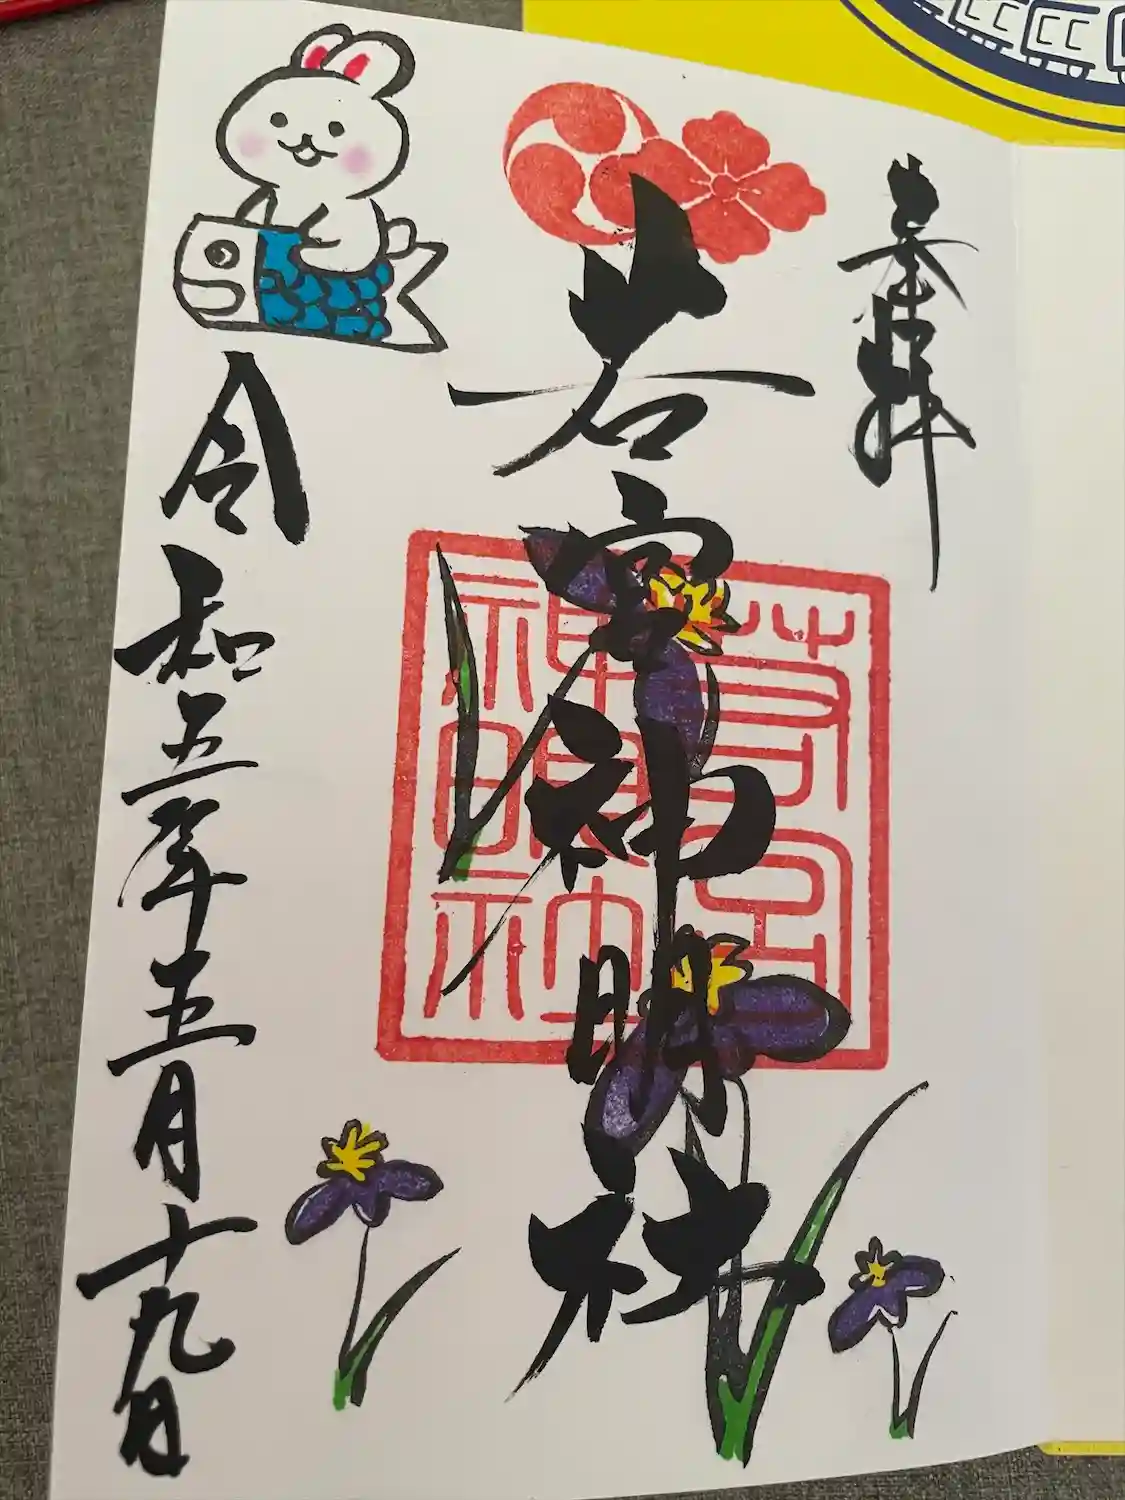 奉拝
若宮神明社
若宮
神明社
令和五年五月十九日